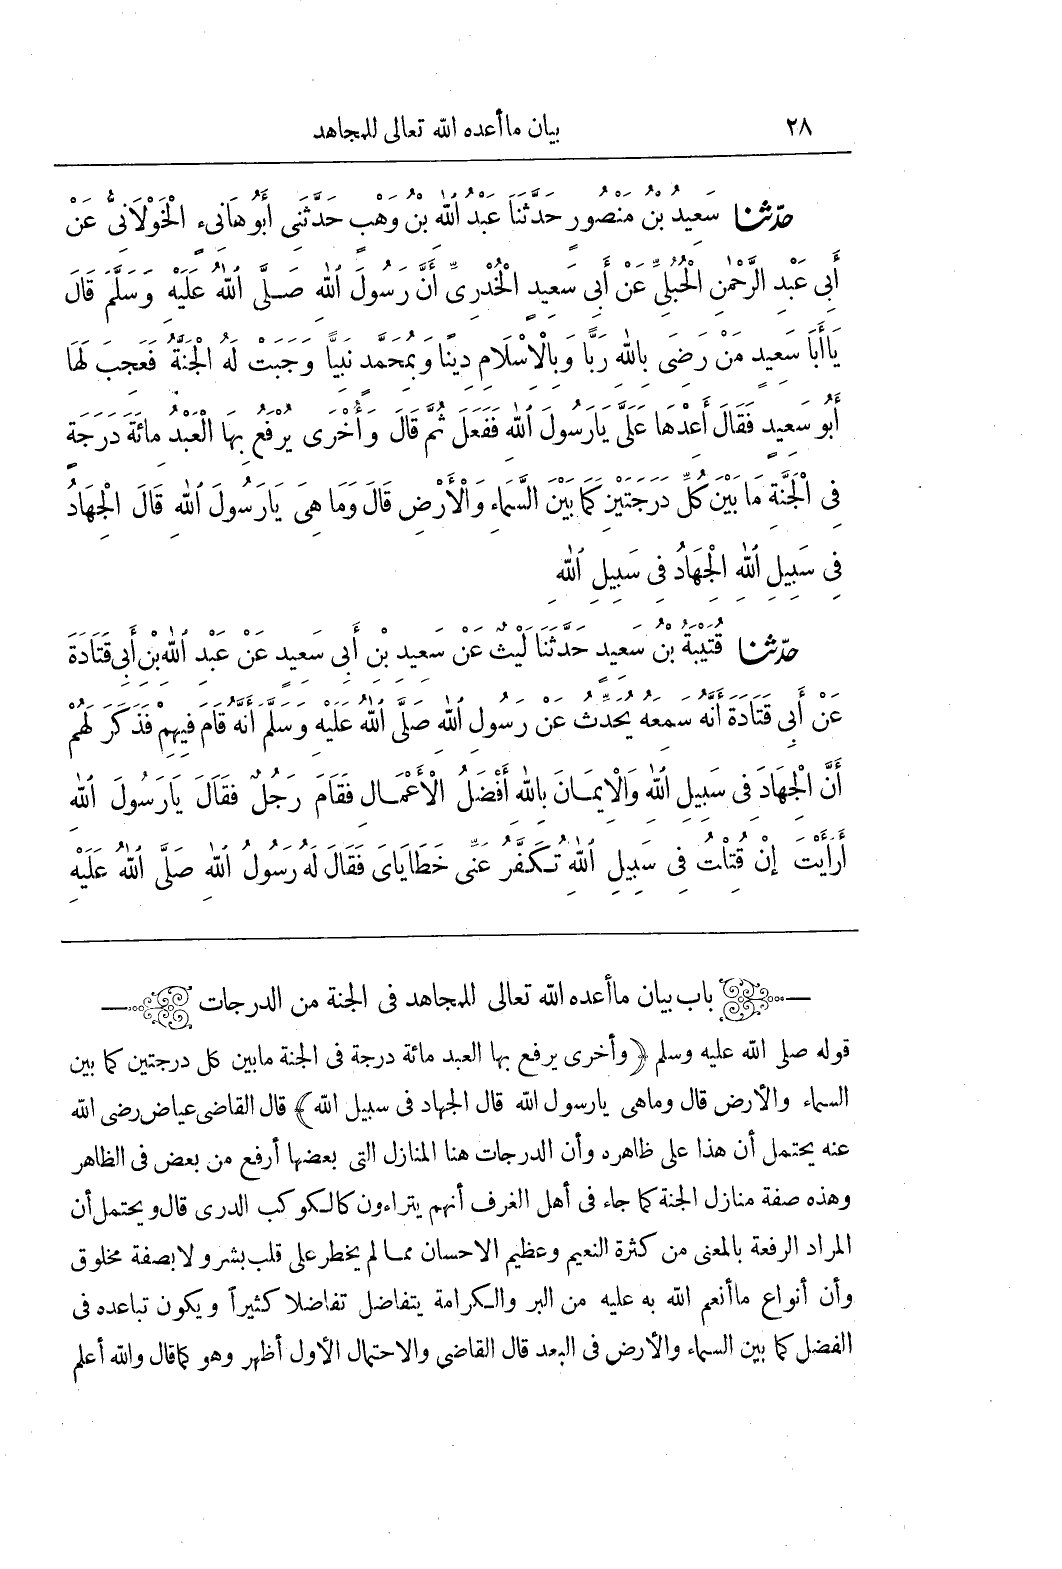 ٢٨ بيان ما أعده الله تعالى للمجاهد
حدّثنا سَعِيدُ بْنُ مَنْصُورٍ حَدَّثَنَا عَبْدُ اللهِ بْنُ وَهْبٍ حَدَّثَنِى أَبُو هَانِىءٍ الْخَوْلَانِىُّ عَنْ
أَبِى عَبْدِ الرَّحْمٰنِ الْحُبُلِىِّ عَنْ أَبِى سَعِيدٍ الْخُدْرِىِّ أَنَّ رَسُولَ اللهِ صَلَّى اللهُ عَلَيْهِ وَسَلَّمَ قَالَ
يَا أَبَا سَعِيدٍ مَنْ رَضِىَ بِاللهِ رَبًّا وَبِالْاسْلَامِ دِينًا وَبِمُحَمَّدٍ نَبِيًّا وَجَبَتْ لَهُ الْجَنَّةُ فَعَجِبَ لَهَا
أَبُو سَعِيدٍ فَقَالَ أَعِدْهَا عَلَىَّ يَارَسُولَ اللهِ فَفَعَلَ ثُمَّ قَالَ وَأُخْرَى يُرْفَعُ بِهَا الْعَبْدُ مِائَةَ دَرَجَةٍ
فِى الْجَنَّةِ مَا بَيْنَ كُلِّ دَرَجَتَيْنِ كَمَا بَيْنَ السَّمَاءِ وَالْأَرْضِ قَالَ وَمَا هِىَ يَارَسُولَ اللهِ قَالَ الْجِهَادُ
فِى سَبِيلِ اللهِ الْجِهَادُ فِى سَبِيلِ اللهِ
حدّثنا قُتَيْبَةُ بْنُ سَعِيدٍ حَدَّثَنَا لَيْثٌ عَنْ سَعِيدِ بْنِ أَبِى سَعِيدٍ عَنْ عَبْدِ اللهِ بْنِ أَبِى قَتَادَةَ
عَنْ أَبِى قَتَادَةَ أَنَّهُ سَمِعَهُ يُحَدِّثُ عَنْ رَسُولِ اللهِ صَلَّى اللهُ عَلَيْهِ وَسَلَّمَ أَنَّهُ قَامَ فِيهِمْ فَذَكَرَ لَهُمْ
أَنَّ الْجِهَادَ فِى سَبِيلِ اللهِ وَالْايمَانَ بِاللهِ أَفْضَلُ الْأَعْمَالِ فَقَامَ رَجُلٌ فَقَالَ يَارَسُولَ اللهِ
أَرَأَيْتَ إِنْ قُتِلْتُ فِى سَبِيلِ اللهِ تُكَفَّرُ عَنِّى خَطَايَاىَ فَقَالَ لَهُ رَسُولُ اللهِ صَلَّى اللهُ عَلَيْهِ
باب بيان ما أعده الله تعالى للمجاهد فى الجنة من الدرجات
قوله صلى الله عليه وسلم ﴿ وأخرى يرفع بها العبد مائة درجة فى الجنة مابين كل درجتين كما بين
السماء والأرض قال وماهى يارسول الله قال الجهاد فى سبيل الله ﴾ قال القاضى عياض رضى الله
عنه يحتمل أن هذا على ظاهره وأن الدرجات هنا المنازل التى بعضها أرفع من بعض فى الظاهر
وهذه صفة منازل الجنة كما جاء فى أهل الغرف أنهم يتراءون كالكوكب الدرى قال ويحتمل أن
المراد الرفعة بالمعنى من كثرة النعيم وعظيم الاحسان مما لم يخطر على قلب بشر ولا بصفة مخلوق
وأن أنواع ماأنعم الله به عليه من البر والكرامة يتفاضل تفاضلا كثيراً ويكون تباعده فى
الفضل كما بين السماء والأرض فى البعد قال القاضى والاحتمال الأول أظهر وهو كما قال والله أعلم